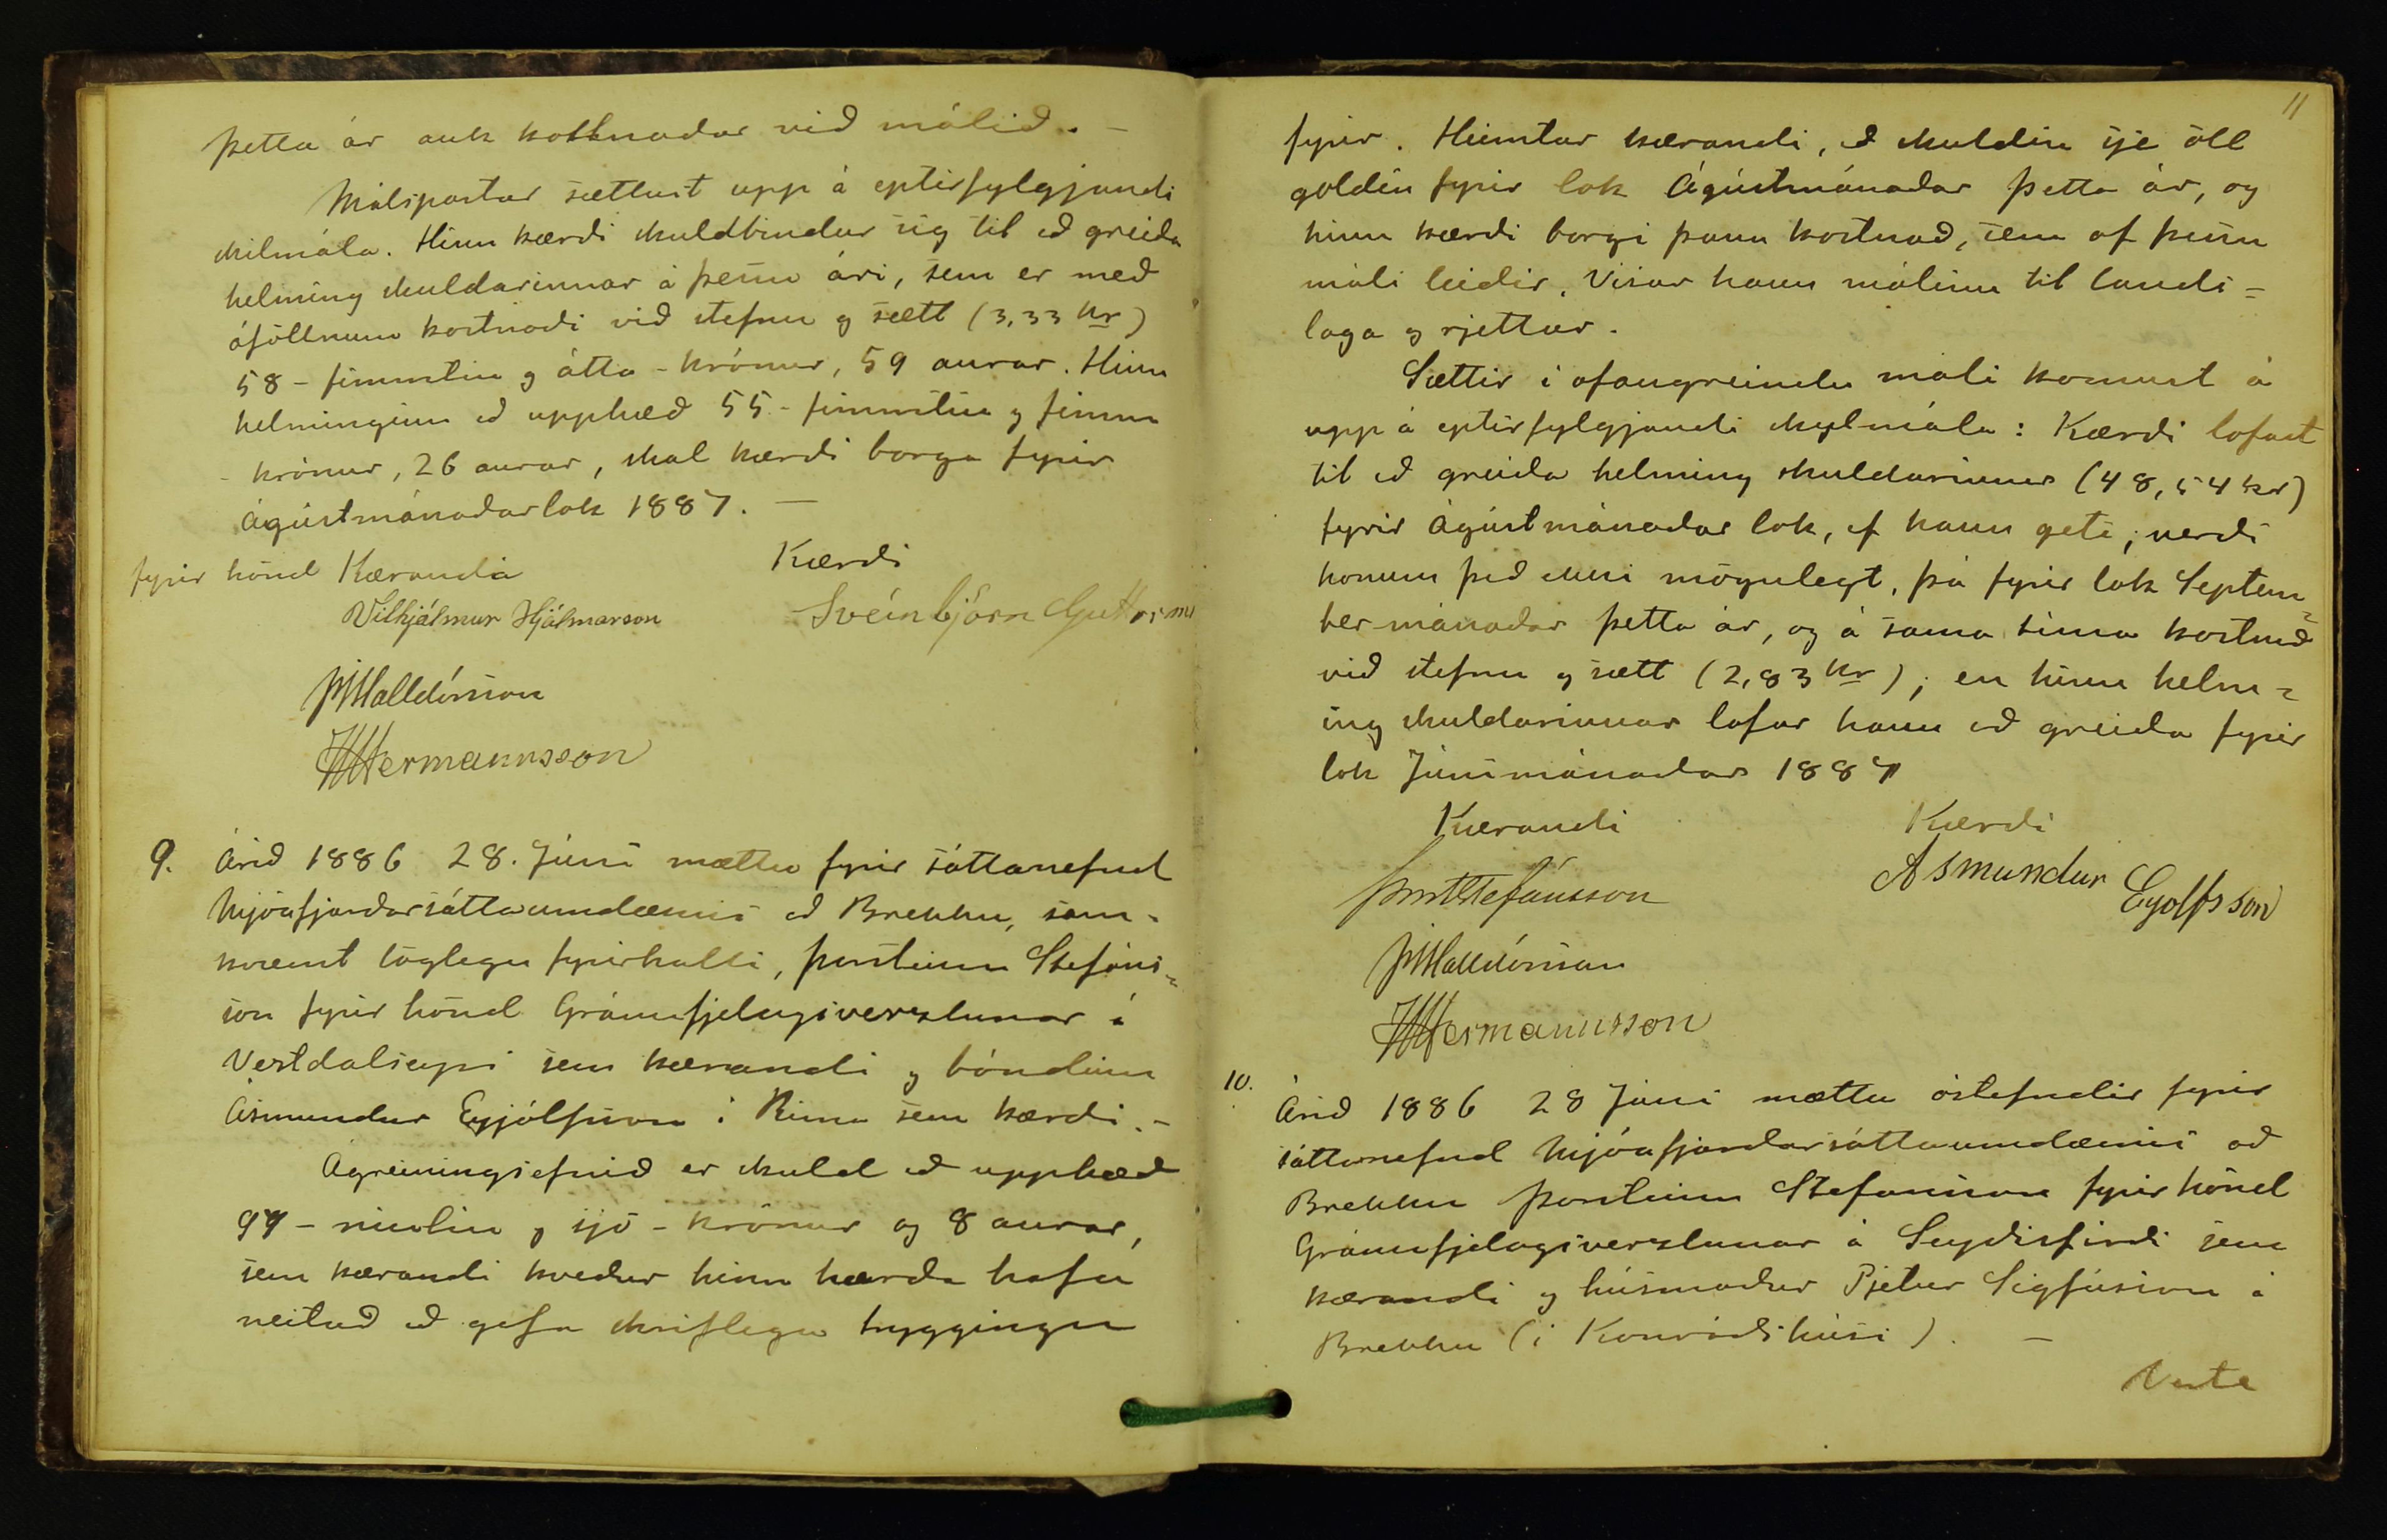 þetta ár auk kostnaðar við málið. –
Málspartar sættust upp á eptirfylgjandi
skilmála. Hinn kærði skuldbindur sig til að greiða
helming skuldarinnar á þessu ári, sem er með
áföllnum kostnaði við stefnu og sætt (3,33 Kr)
58 – fimmtíu og átta – krónur, 59 aurar. Hinn
helminginn að upphæð 55 – fimmtíu og fimm
– krónur, 26 aurar, skal kærði borga fyrir
Ágústmánaðarlok 1887. –
fyrir hönd Kæranda
Kærði
Vilhjálmur Hjálmarson
Sveinbjörn Guttorms
ÞJHalldórsson
HHermannsson
9. Árið 1886 28. Júní mættu fyrir sáttanefnd
Mjóafjarðarsáttaumdæmis að Brekku, sam-
kvæmt löglegu fyrirkalli, Þorsteinn Stefáns-
son fyrir hönd Gránufjelagsverzlunar á
Vestdalseyri sem kærandi og bóndinn
Ásmundur Eyjólfsson í Rima sem kærði. –
Ágreiningsefnið er skuld að upphæð
97 – níutíu og sjö – krónur og 8 aurar,
sem kærandi kveður hinn kærða hafa
neitað að gefa skriflega tryggingu
11
fyrir. Heimtar kærandi, að skuldin sje öll
goldin fyrir lok Ágústmánaðar þetta ár, og
hinn kærði borgi þann kostnað, sem af þessu
máli leiðir. Vísar hann málinu til lands-
laga og rjettar.
Sættir í ofangreindu máli komust á
upp á eptirfylgjandi skylmála: Kærði lofast
til að greiða helming skuldarinnar (48,54 kr)
fyrir Ágústmánaðar lok, ef hann geti; verði
honum það ekki mögulegt, þá fyrir lok Septem-
bermánaðar þetta ár, og á sama tíma kostnað
við stefnu og sætt (2,83 Kr); en hinn helm-
ing skuldarinnar lofar hann að greiða fyrir
lok Júnímánaðar 1887
Kærandi
Kærði
ÞorstStefánsson
Asmundur Eyolfsson
ÞJHalldórsson
HHermannsson
10. Árið 1886 28 Júní mættu óstefndir fyrir
sáttanefnd Mjóafjarðarsáttaumdæmis að
Brekku Þorsteinn Stefansson fyrir hönd
Gránufjelagsverzlunar á Seyðisfirði sem
kærandi og húsmaður Pjetur Sigfússon á
Brekku (í Konráðshúsi). –
Verte